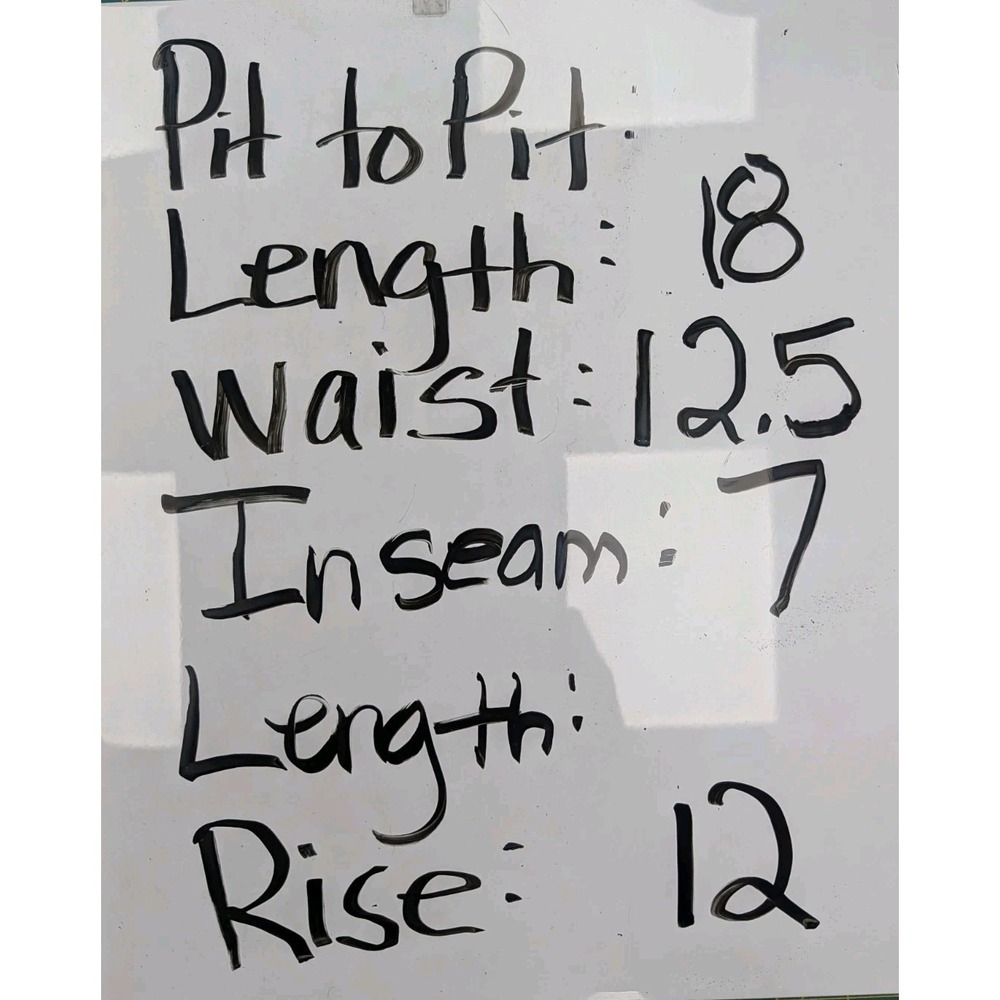 Pit to Pit:
Length: 18
Waist: 12.5
Inseam: 7
Length:
Rise: 12